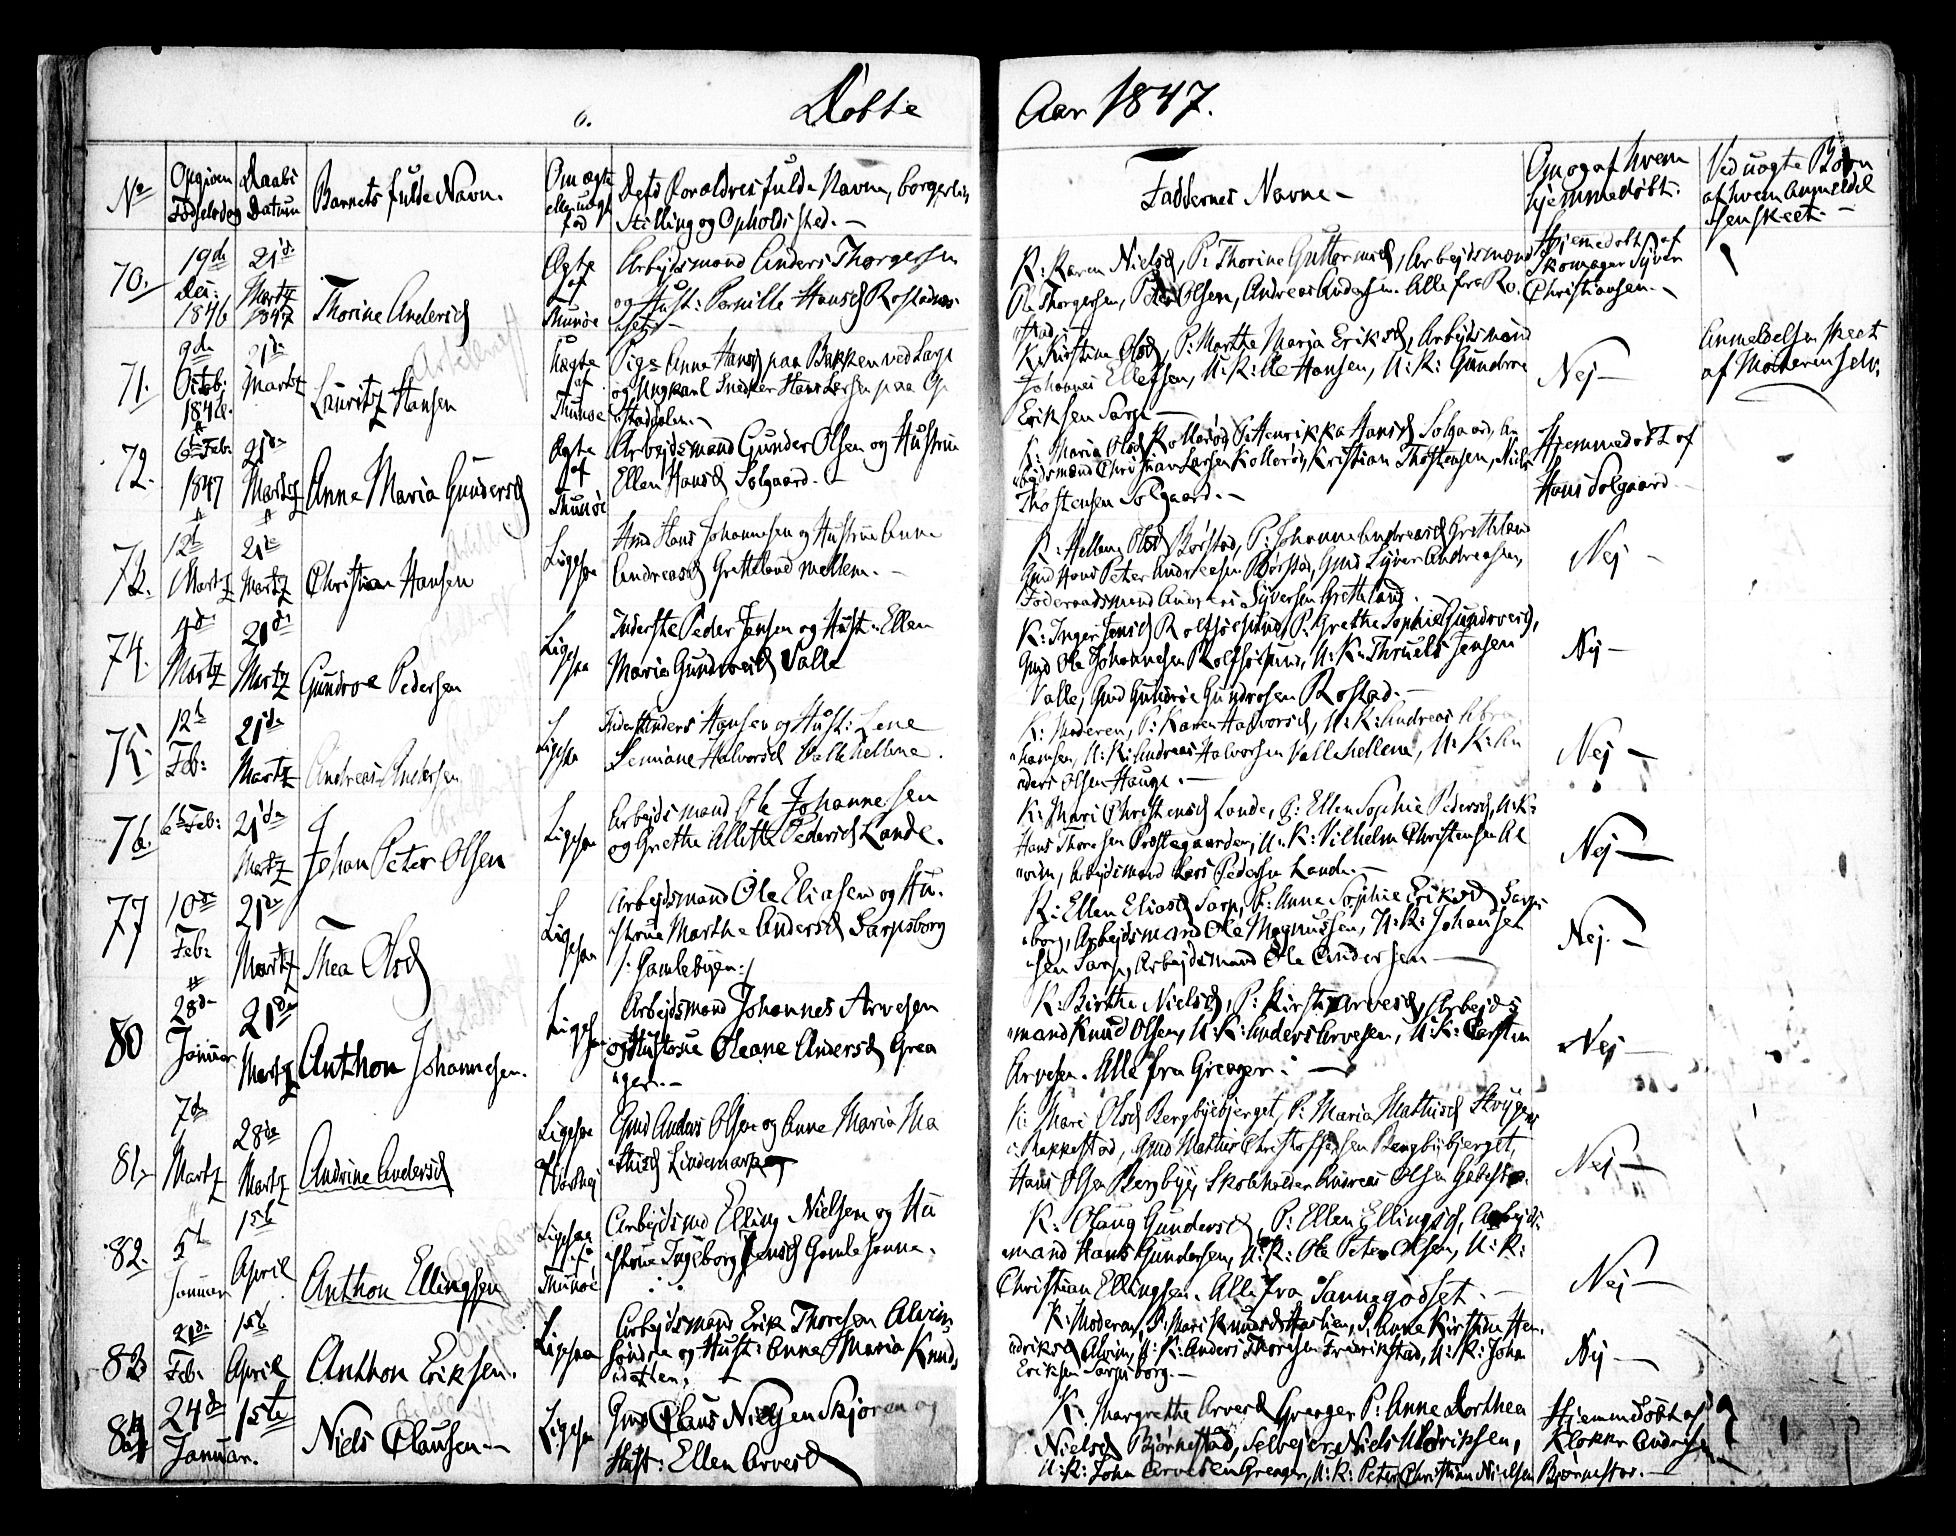 Døbte Aar 1847.
No
Opgiven Fødselsdag
Daabs Datum
Barnets fulde Navn.
Om ægte eller uægte fød
Dets Forældres fulde Navne, borgerlig Stilling og Opholdssted. —
Faddernes Navne —
Om og af hvem hjemmedøbt.
Ved uægte Børn af hvem Anmeldelsen skeet. —
70.
19de Dec: 1846
21de Martz 1847
Thorine Andersd
Ægte af Thunøe
Arbejdsmand Anders Thorgersen
og Hust: Pernille Hansd
K: Karen Nielsd, P: Thorine Guttormsd, Arbejdsmænd
Ole Thorgersen, Peder Olsen, Andreas Andersen. Alle fra Ro-
stad.
Hjemmedøbt af
Skomager Syver
Christiansen. —
71.
9de Octob: 1846.
21de Martz
Lauritz Hansen
Uægte af Thunøe
Pige Anne Hansd paa Bakken ved Sarp
og Ungkarl Snedker Hans Larsen paa
K: Kirstine Olsd, P: Marthe Marja Eriksd, Arbejdsmand
Johannes Ellefsen, U: K: Ole Hansen, U: K: Gundroe
Eriksen Sarp —
Nej —
Anmeldelsen skeet
af Moderen selv.
72.
6te Feb: 1847
21de Martz
Anne Maria Gundersd
Ægte af Thunøe
Arbejdsmand Gunder Olsen og Hustrue
Ellen Hansd Solgaard. —
K: Maria Olsd Kollerød, P: Henrikka Hansd Solgaard, Ar-
bejdsmænd Christian Larsen Kollerød, Kristian Thostensen, Niels
Thostensen Solgaard. —
Hjemmedøbt af
Hans Solgaard
73.
12te Martz
21de Martz
Christian Hansen
Ligesaa
Gmd Hans Johannesen og Hustrue Anne
Andreasd Gretteland mellem. —
K: Hellene Olsd Borstad, P: Johanne Andreasd Gretteland
Gmd Hans Peter Andreasen Borstad, Gmd Syver Andreasen,
Føderaadsmand Andreas Syversen Gretteland.
Nej —
74.
4de Martz
21de Martz
Gundroe Pedersen
Ligesaa
Inderste Peder Jensen og Hust: Ellen
Maria Gundroesd Valle
K: Inger Jensd Rolfsøesund, P: Grethe Sophie Gundroesd,
Gmd Ole Johannesen Rolfsøesund, U: K: Thruels Jensen
Valle, Gmd Gundroe Gundrosen Rostad. —
Nej —
75.
12te Feb:
21de Martz
Andreas Andersen
Ligesaa
Inderst Anders Hansen og Hust: Lene
Halvorsd Valle hellene.
K: Moderen, P: Karen Halvorsd, U: K: Andreas Abra-
hamsen, U: K: Andreas Halvorsen Valle hellene, U: K: An-
ders Olsen Hauge. —
Nej —
76.
6te Feb:
21de Martz
Johan Peter Olsen
Ligesaa
Arbejdsmand Ole Johannesen
og Grethe Allette Pedersd Lande.
K: Mari Christensd Lande, P: Ellen Sophie Pedersd, U: K:
Hans Thoresen Prostegaarden, U: K: Vilhelm Christensen Al-
vim, Arbejdsmand Lars Pedersen Lande. —
Nej —
77
10de Feb:
21de Martz
Thea Olsd
Ligesaa
Arbejdsmand Ole Eliasen og Hu-
strue Marthe Andersd Sarpsborg
/: Gamlebyen:/
K: Ellen Eliasd Sarp, P: Anne Sophie Eriksd Sarps-
borg, Arbejdsmand Ole Magnussen, U: K: Johannes
Sarp, Arbejdsmand Ole Andersen —
Nej. —
80
28de Januar
21de Martz
Anthon Johannesen.
Ligesaa
Arbejdsmand Johannes Arvesen
og Hustrue Oleane Andersd Grea-
ger. —
K: Birthe Nielsd, P: Kirsti Arvesd, Arbejds-
mand Knud Olsen, U: K: Anders Arvesen, U: K: Carsten
Arvesen. Alle fra Greager. —
Nej —
81.
7de Martz
28de Martz
Andrine Andersd
Ligesaa
Gmd Anders Olsen og Anne Maria Ma-
thisd Lindemark
K: Mari Olsd Bergbyebjerget, P: Maria Mathisd
Rakkestad, Gmd Mathis Christoffersen Bergbyebjerget,
Hans Olsen Bergbye, Skoleholder Andreas Olsen
Nej —
82.
5te Januar
15te April
Anthon Ellingsen
Ligesaa af Thunøe
Arbejdsmd Elling Nielsen og Hu-
strue Ingeborg Jensd Gamle Sanne.
K: Olaug Gundersd, P: Ellen Ellingsd, Arbejds-
mand Hans Gundersen, U: K: Ole Peter Olsen, U: K:
Christian Ellingsen. Alle fra Sannegodset. —
Nej —
83
21de Feb:
15te April
Anthon Eriksen.
Ligesaa
Arbejdsmand Erik Thoresen Alvim
søndre og Hust: Anne Maria Knuds-
datter.
K: Moderen, P: Mari Knudsd, P: Anne Kirstine Hen-
driksd Alvim, U: K: Anders Thoresen Fredrikstad, U: K: Johan
Eriksen Sarpsborg. —
Nej —
84
24de Januar.
15te
Niels Clausen —
Ligesaa
Gmd Claus Nielsen Skjøren og
Hust: Ellen Arvesd
K: Margrethe Arvesd Greager P: Anne Dorthea
Nielsd Bjørnestad, Selvejer Niels Ulriksen,
U: K: John Arvesen Greager, U: K: Peter Christian Nielsen
Hjemmedøbt af
Klokker Andersen
Bjørnestad. —